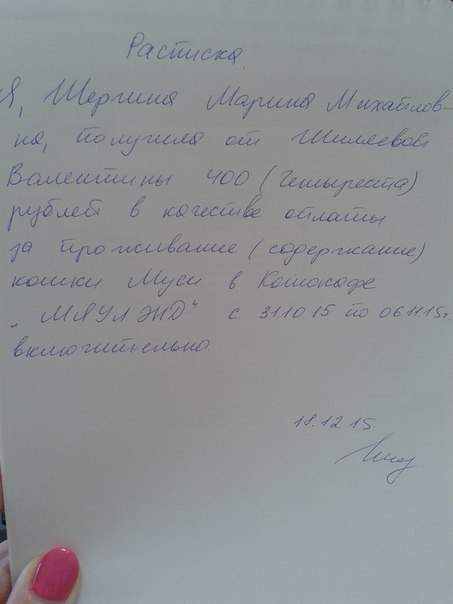 Расписка
Я, Шергина Марина Михайлов-
на, получила от Шилеевой
Валентины 400 (Четыреста)
рублей в качестве оплаты
за проживание (содержание)
кошки Муси в Котокафе
„МЯУЛЭНД“ с 31.10.15 по 06.11.15г.
включительно
11.12.15